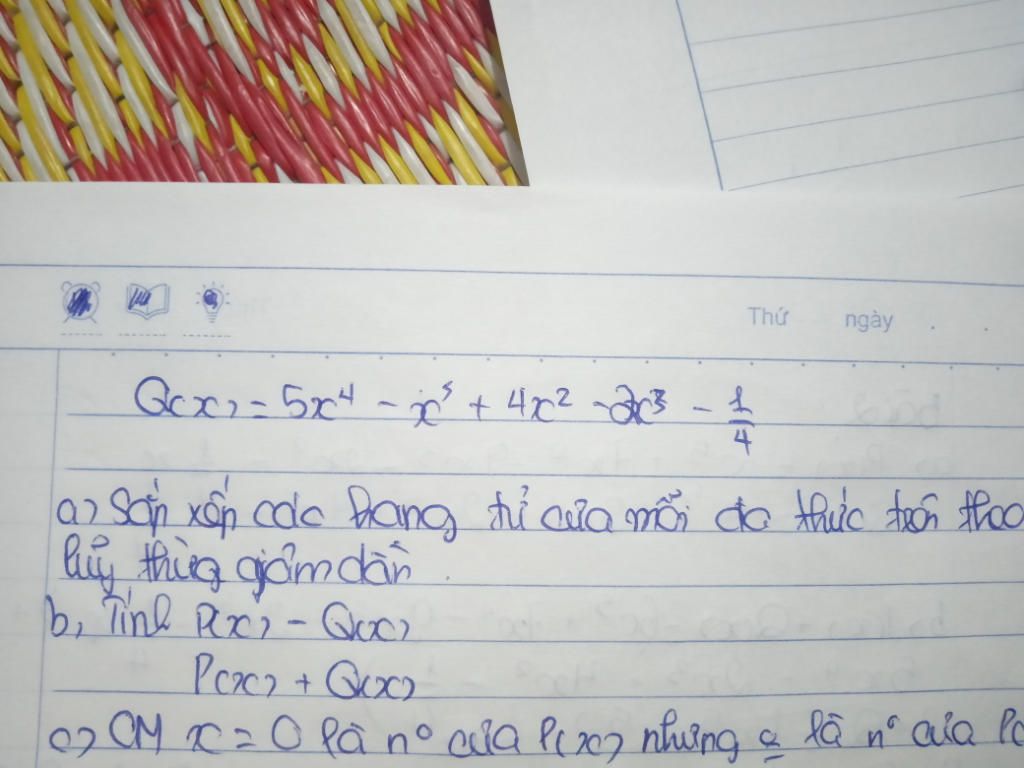 Thứ ngày
Q(x) = 5x⁴ - x⁵ + 4x² - 2x³ - 1/4
a) Sắp xếp các hạng tử của mỗi đa thức trên theo
lũy thừa giảm dần.
b, Tính P(x) - Q(x)
P(x) + Q(x)
c) CM x = 0 là n° của P(x) nhưng là n° của